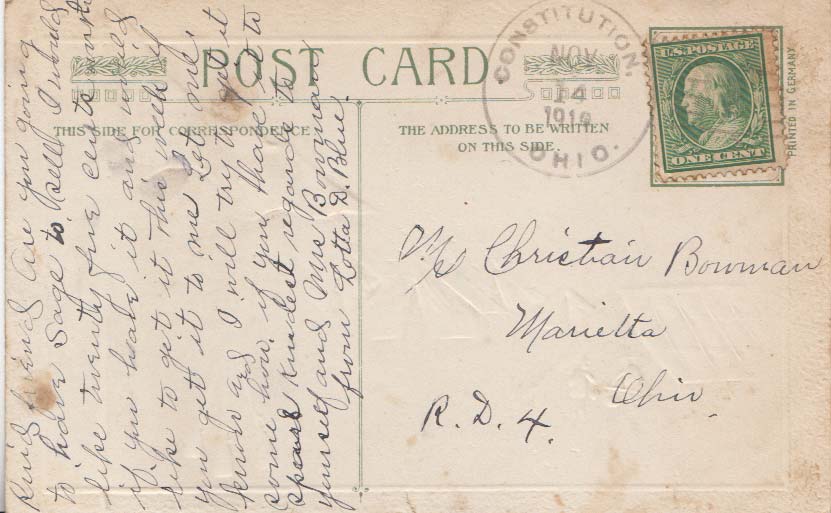 POST CARD.
THIS SIDE FOR CORRESPONDENCE
THE ADDRESS TO BE WRITTEN
ON THIS SIDE.
CONSTITUTION,
NOV
14
OHIO.
U.S. POSTAGE
ONE CENT
PRINTED IN GERMANY
Kind friend are you going
to have Sage to sell I would
like twenty five cents
if you have it and
like to get it this week if
you get it to me Let me
know and I will try to get it
some how. if you have it to
spare kindest regards to
yourself and Mrs Bowman
from Lotta D. Blue.
Christian Bowman
Marietta
Ohio
R. D. 4.